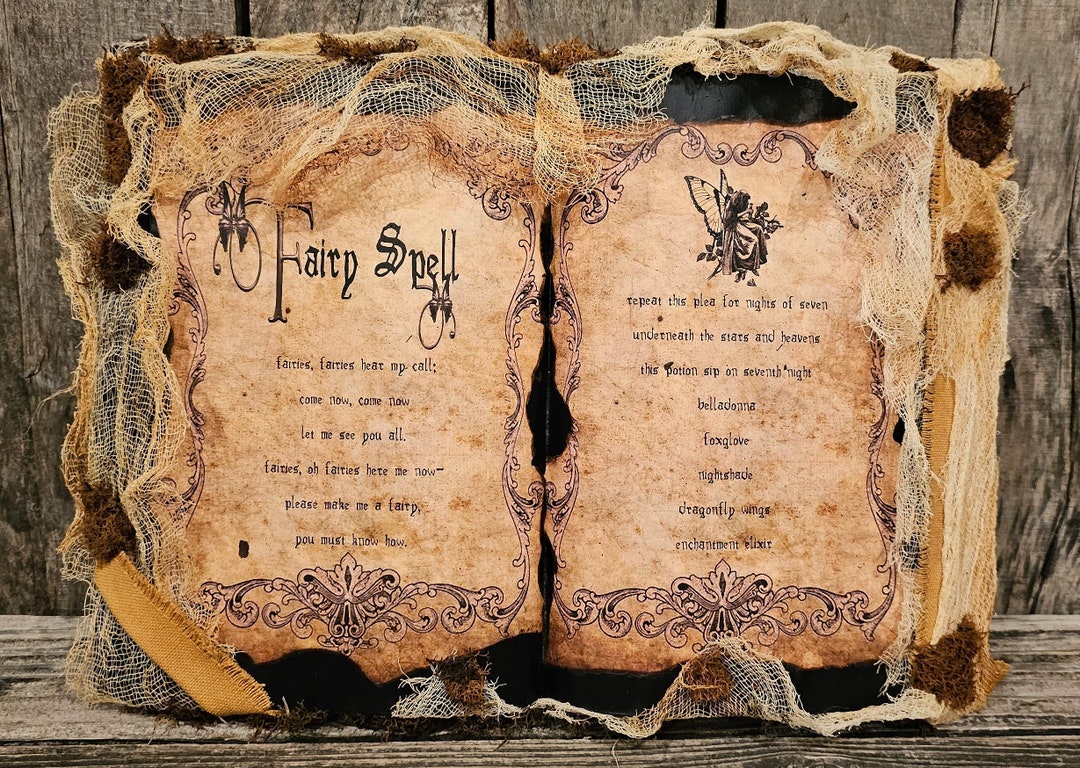 Fairy Spell
fairies, fairies hear my call;
come now, come now
let me see you all.
fairies, oh fairies here me now~
please make me a fairy,
you must know how.
repeat this plea for nights of seven
underneath the stars and heavens
this potion sip on seventh night
belladonna
foxglove
nightshade
dragonfly wings
enchantment elixir